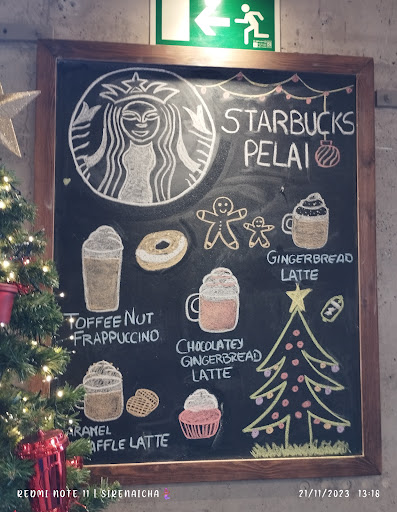 STARBUCKS
PELAI
GINGERBREAD
LATTE
TOFFEE NUT
FRAPPUCCINO
CHOCOLATEY
GINGERBREAD
LATTE
LATTE
REDMI NOTE 11 | SIRENAICHA
21/11/2023 13:16